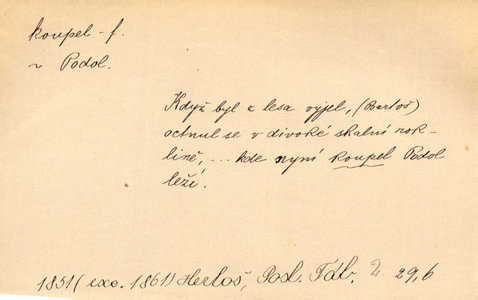 koupel - f.
~ Podol.
Když byl z lesa vyjel, (Bartoš)
octnul se v divoké skalní rok-
lině, ... kde nyní koupel Podol
leží.
1851 (exc. 1861) Herloš, Posl. Táb. 2. 29,6